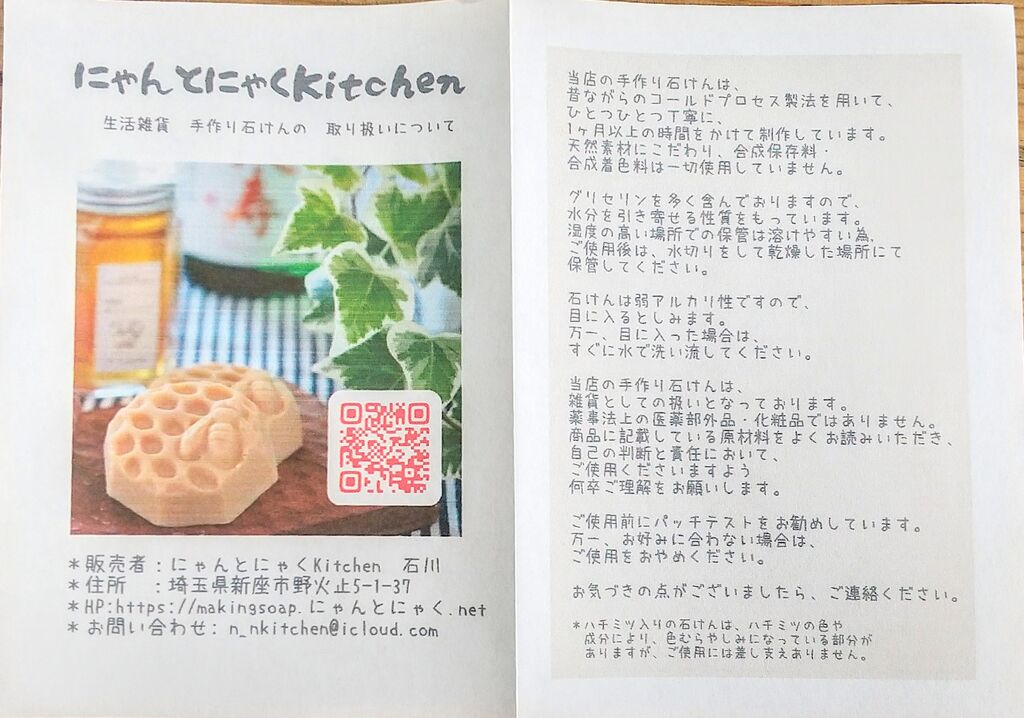 にゃんとにゃくKitchen
生活雑貨 手作り石けんの 取り扱いについて
寿
*販売者：にゃんとにゃくKitchen 石川
*住所 ：埼玉県新座市野火止5-1-37
*HP:https://makingsoap.にゃんとにゃく.net
*お問い合わせ: n_nkitchen@icloud.com
当店の手作り石けんは、
昔ながらのコールドプロセス製法を用いて、
ひとつひとつ丁寧に、
1ヶ月以上の時間をかけて制作しています。
天然素材にこだわり、合成保存料・
合成着色料は一切使用していません。
グリセリンを多く含んでおりますので、
水分を引き寄せる性質をもっています。
湿度の高い場所での保管は溶けやすい為、
ご使用後は、水切りをして乾燥した場所にて
保管してください。
石けんは弱アルカリ性ですので、
目に入るとしみます。
万一、目に入った場合は、
すぐに水で洗い流してください。
当店の手作り石けんは、
雑貨としての扱いとなっております。
薬事法上の医薬部外品・化粧品ではありません。
商品に記載している原材料をよくお読みいただき、
自己の判断と責任において、
ご使用くださいますよう
何卒ご理解をお願いします。
ご使用前にパッチテストをお勧めしています。
万一、お好みに合わない場合は、
ご使用をおやめください。
お気づきの点がございましたら、ご連絡ください。
*ハチミツ入りの石けんは、ハチミツの色や
成分により、色むらやしみになっている部分が
ありますが、ご使用には差し支えありません。